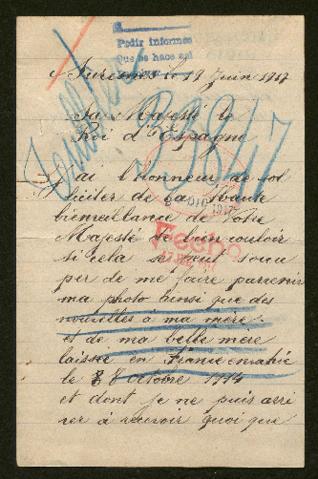 Pedir informes
Que se hace así
Suresnes le 19 Juin 1917
Sa Majesté le
Roi d'Espagne
33847
J'ai l'honneur de sol
liciter de la Haute
bienveillance de Votre
Majesté de bien vouloir
si cela se peut
de me faire parvenir
ma photo ainsi que des
nouvelles à ma mère
et de ma belle mère
laissée en France envahie
le 8 Octobre 1914
et dont je ne puis arri
ver à recevoir quoi que
Fecho